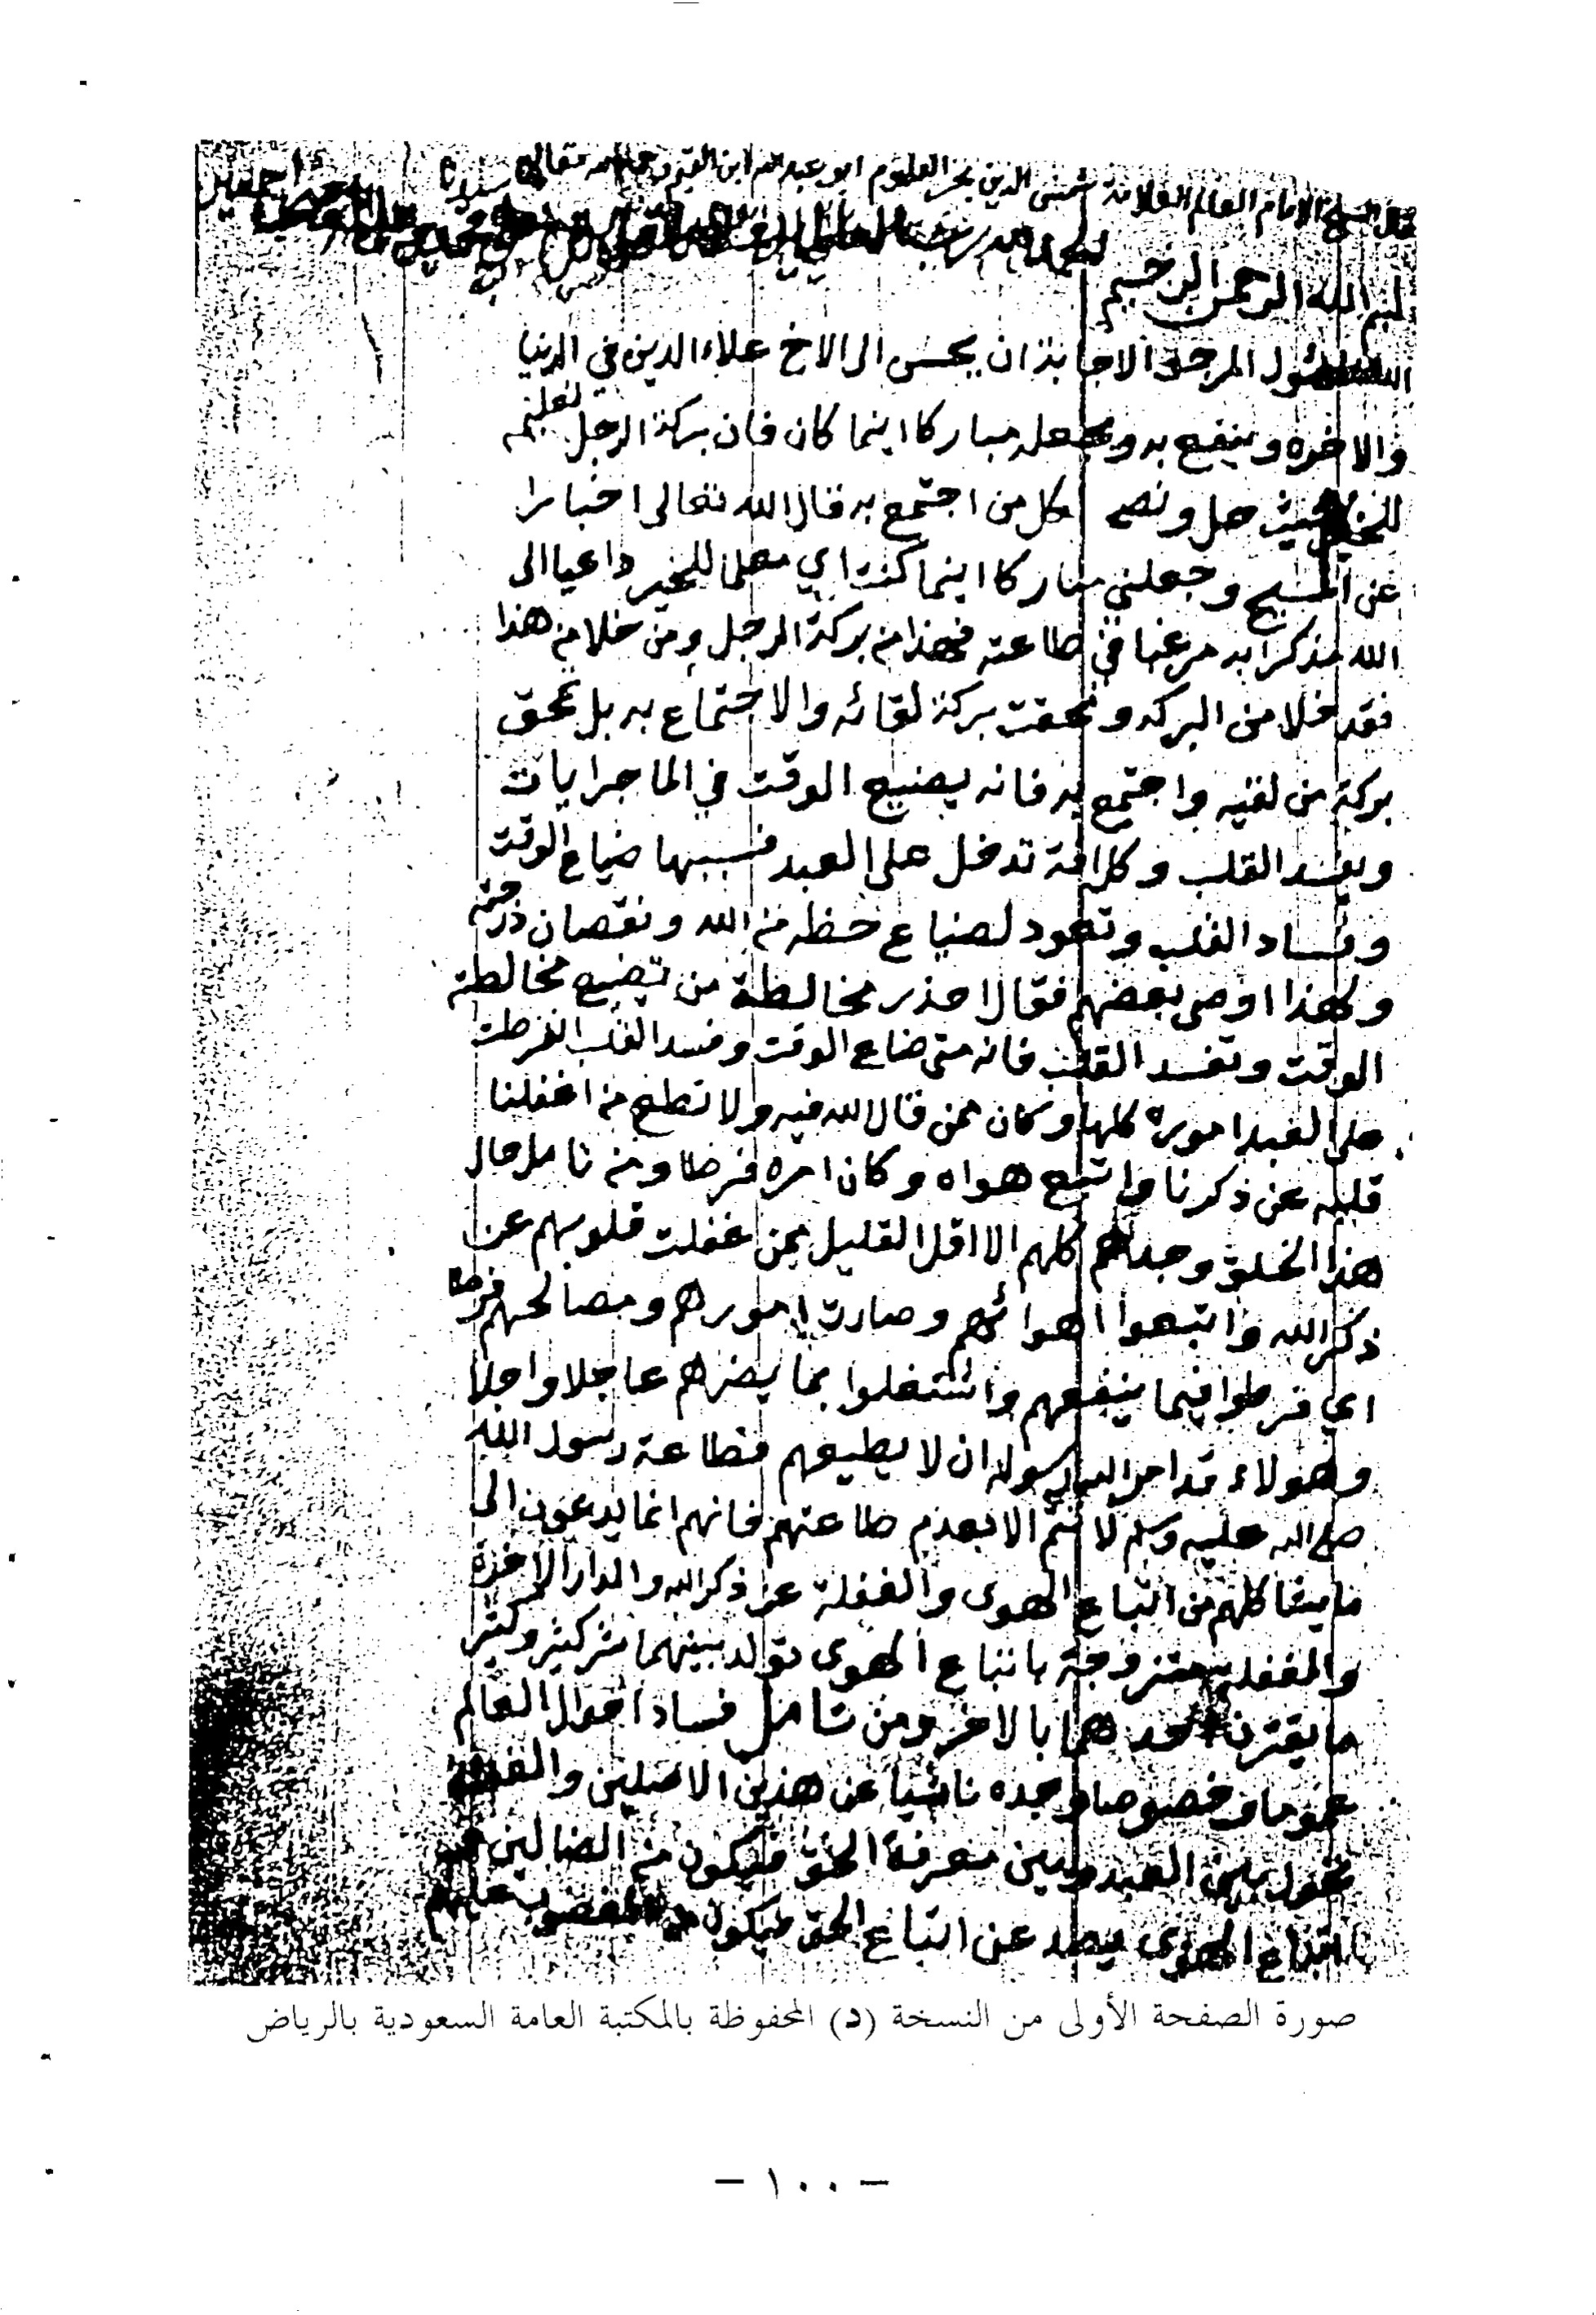 قال الشيخ الامام العالم العلامة شمس الدين بحر العلوم ابو عبد الله ابن القيم
بسم الله الرحمن الرحيم
الله المسئول المرجو الاجابة ان يحسن الى الاخ علاء الدين في الدنيا
والاخره وينفع به ويجعله مباركا اينما كان فان بركة الرجل تعليمه
للخير حيث حل ونصحه لكل من اجتمع به قال الله تعالى اخبارا
عن المسيح وجعلني مباركا اينما كنت اي معلما للخير داعيا الى
الله مذكرا به مرغبا في طاعته فهذا من بركة الرجل ومن خلا من هذا
فقد خلا من البركه ومحقت بركة لقائه والاجتماع به بل تمحق
بركة من لقيه واجتمع به فانه يضيع الوقت في الماجرايات
ويفسد القلب وكل افة تدخل على العبد فسببها ضياع الوقت
وفساد القلب وتعود لضياع حظه من الله ونقصان درجته
ولهذا اوصى بعضهم فقال احذر مخالطة من تضيع مخالطته
الوقت وتفسد القلب فانه متى ضاع الوقت وفسد القلب انفرطت
على العبد اموره كلها وكان ممن قال الله فيه ولا تطع من اغفلنا
قلبه عن ذكرنا واتبع هواه وكان امره فرطا ومن تامل حال
هذا الخلق وجدهم كلهم الا اقل القليل ممن غفلت قلوبهم عن
ذكر الله واتبعوا اهوائهم وصارت امورهم ومصالحهم فرطا
اي فرطوا فيما ينفعهم واشتغلوا بما يضرهم عاجلا واجلا
وهولاء قد امر الله رسوله ان لا يطيعهم فطاعة رسول الله
صلى الله عليه وسلم لا تتم الا بعدم طاعتهم فانهم انما يدعون الى
ما يشاكلهم من اتباع الهوى والغفلة عن ذكر الله والدار الاخرة
والغفلة متزوجة باتباع الهوى تولد بينهما شر كثير وكثير
ما يقترن احدهما بالاخر ومن تامل فساد احوال العالم
عموما وخصوصا وجده ناشيا عن هذين الاصلين والغفلة
تحول بين العبد وبين معرفة الحق فيكون من الضالين
باتباع الهوى يصد عن اتباع الحق فيكون من المغضوب عليهم
صورة الصفحة الأولى من النسخة (د) المحفوظة بالمكتبة العامة السعودية بالرياض
– ١٠٠ –